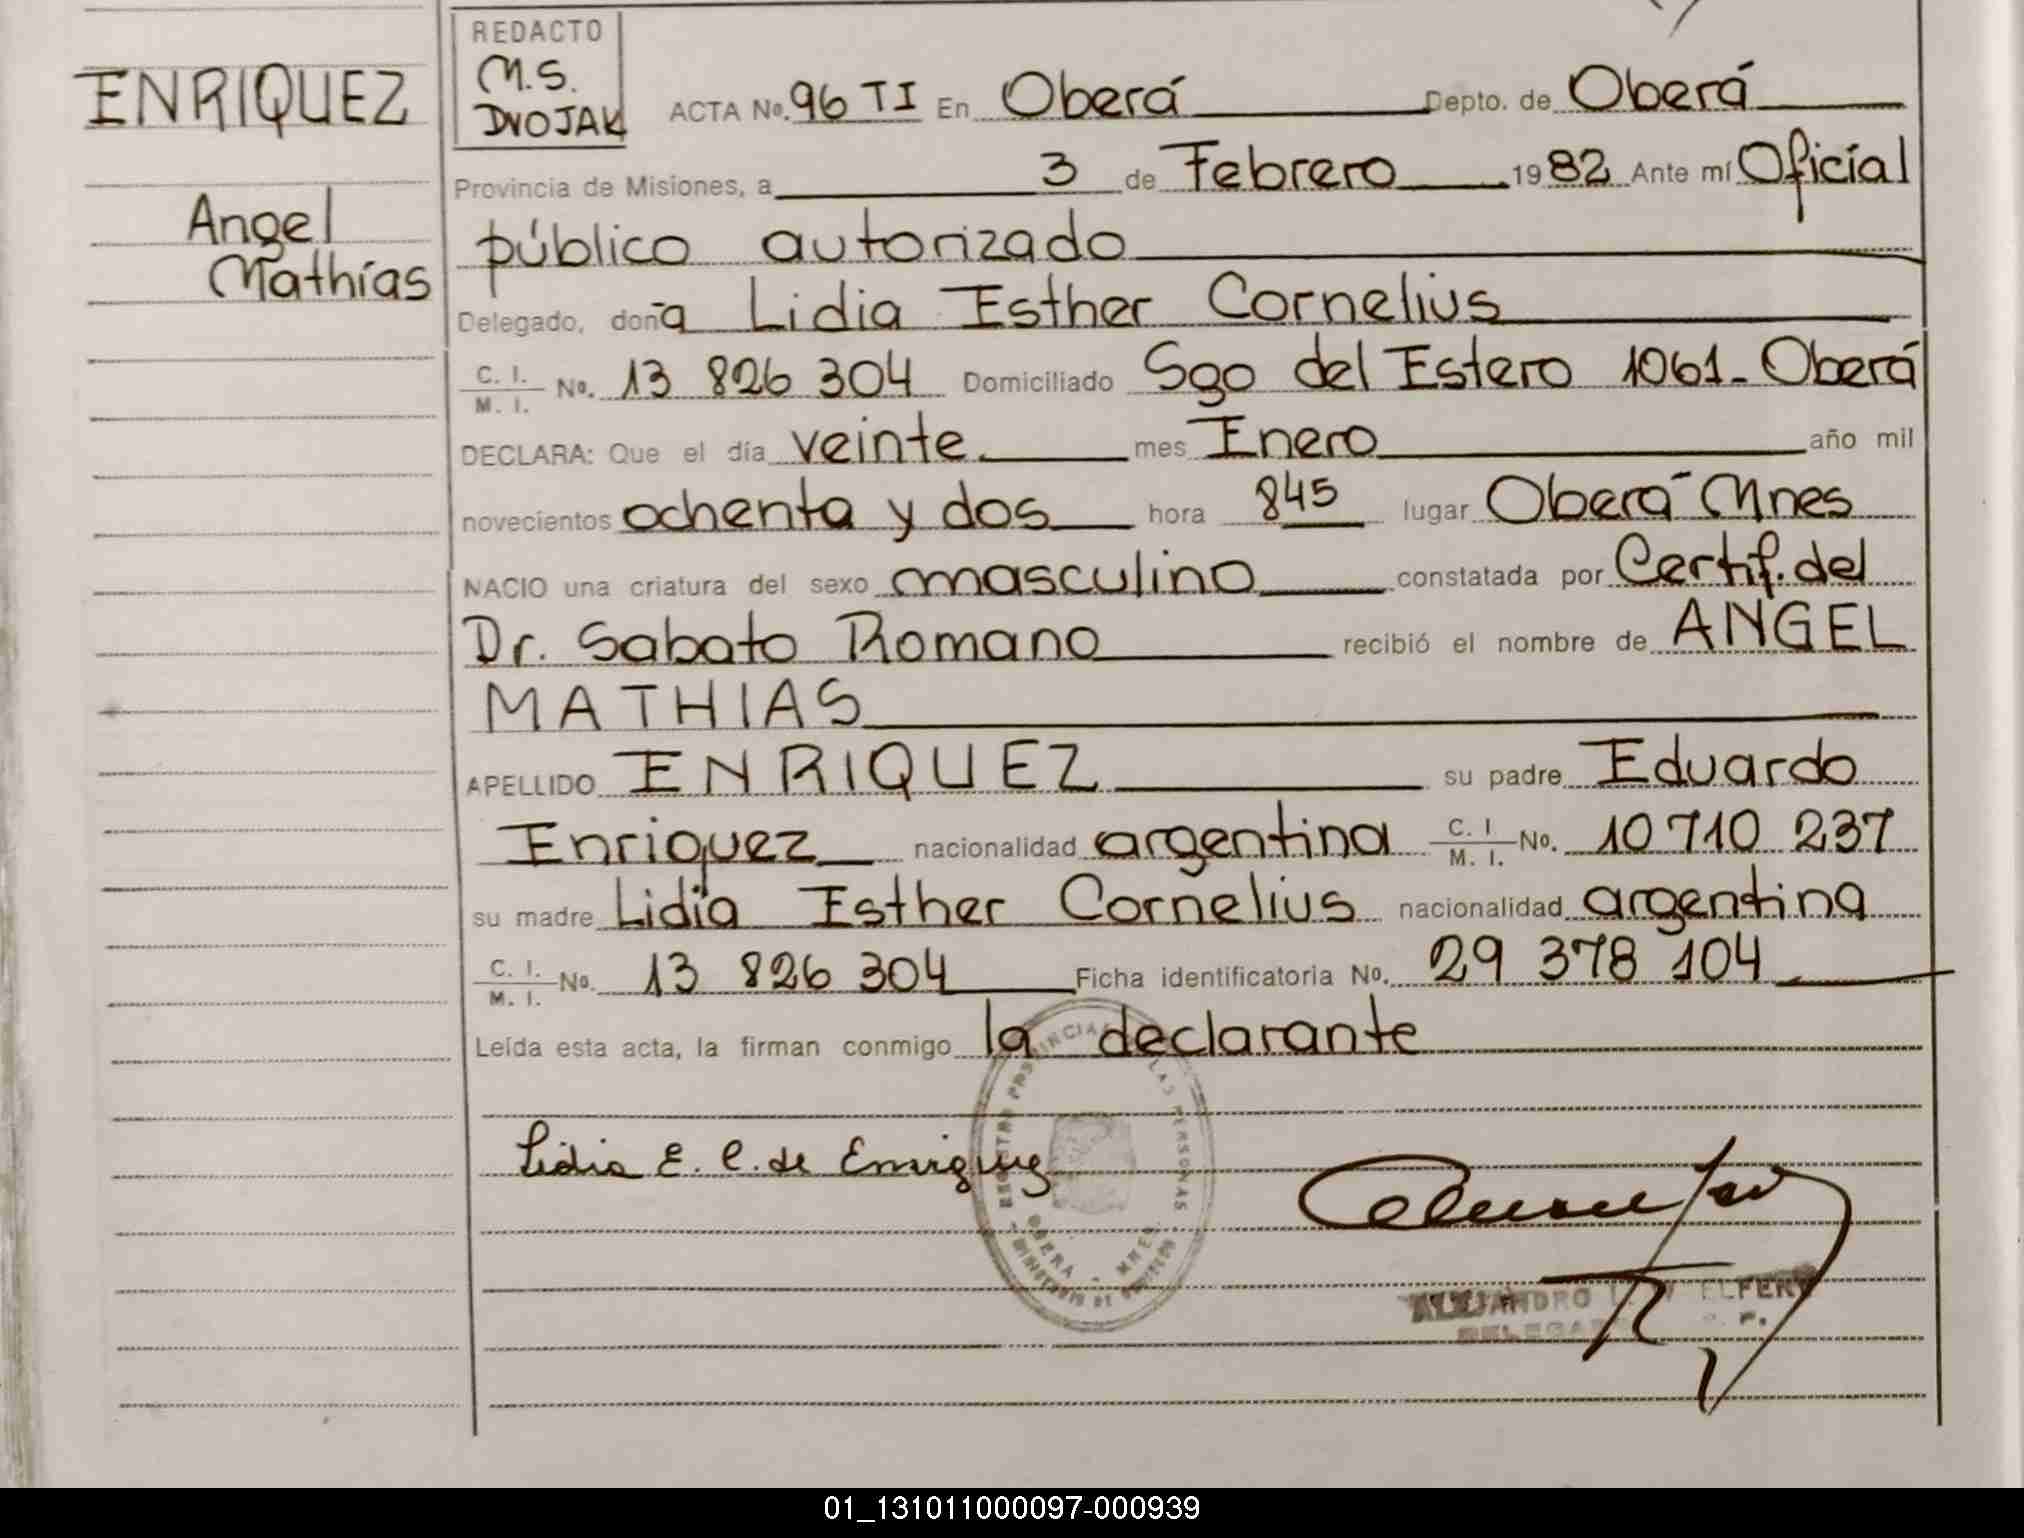 ENRIQUEZ
Angel
Mathías
REDACTO
M.S.
DVOJAK
ACTA No. 96 TI En Oberá Depto. de Oberá
Provincia de Misiones, a 3 de Febrero 1982 Ante mí Oficial
público autorizado
Delegado, doña Lidia Esther Cornelius
C. I. / M. I. No. 13 826 304 Domiciliado Sgo del Estero 1061- Oberá
DECLARA: Que el día veinte. mes Enero año mil
novecientos ochenta y dos hora 845 lugar Oberá Mnes
NACIO una criatura del sexo masculino constatada por Certif. del
Dr. Sabato Romano recibió el nombre de ANGEL
MATHIAS
APELLIDO ENRIQUEZ su padre Eduardo
Enriquez nacionalidad argentina C. I / M. I. No. 10 710 237
su madre Lidia Esther Cornelius nacionalidad argentina
C. I. / M. I. No. 13 826 304 Ficha identificatoria No. 29 378 104
Leída esta acta, la firman conmigo la declarante
Lidia E. C. de Enriquez
OBERA - MNES
ALEJANDRO
01_131011000097-000939